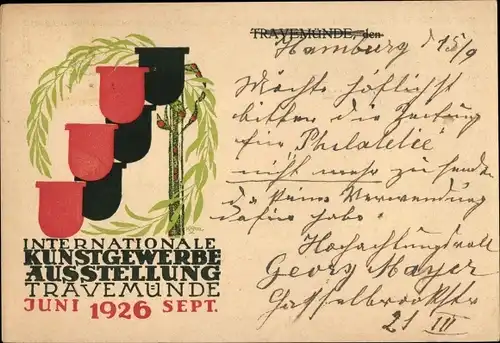 TRAVEMÜNDE, den
Hamburg d 15/9
Möchte höflichst
bitten die Zeitung
für Philatelie
nicht mehr zu senden
da keine Verwendung
dafür habe.
Hochachtungsvoll
Georg Mayer
Hasselbrookstr
21 III
INTERNATIONALE
KUNSTGEWERBE
AUSSTELLUNG
TRAVEMÜNDE
JUNI 1926 SEPT.